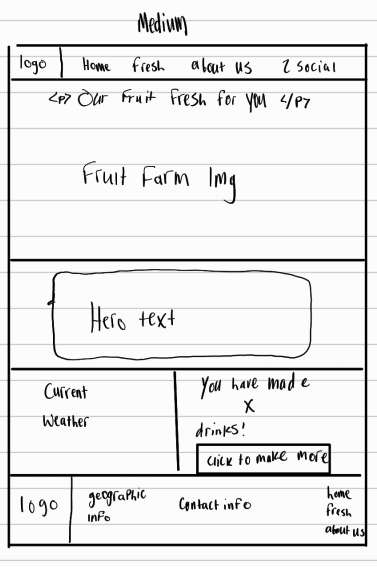 Medium
logo Home fresh about us 2 Social
<p> Our Fruit Fresh for you </p>
Fruit Farm Img
Hero text
Current
Weather
You have made
X
drinks!
click to make more
logo
geographic
info
Contact info
home
fresh
about us